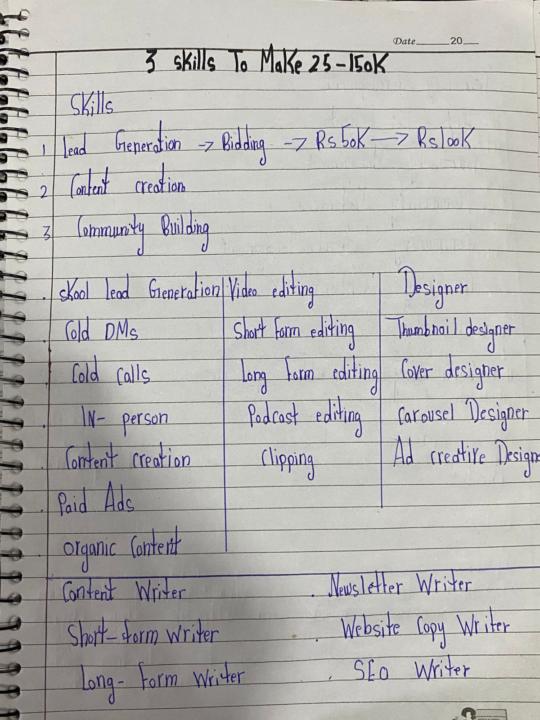 Date 20
3 Skills To Make 25-150K
Skills
1 Lead Generation -> Bidding -> Rs50K -> Rs100K
2 Content creation
3 Community Building
. Skool Lead Generation
Cold DMs
Cold Calls
IN- person
Content creation
Paid Ads
organic Content
Video editing
Short form editing
Long form editing
Podcast editing
Clipping
Designer
Thumbnail designer
Cover designer
Carousel Designer
Ad creative Design
Content Writer
Short-form writer
Long- form Writer
. Newsletter Writer
. Website Copy Writer
. SEO Writer